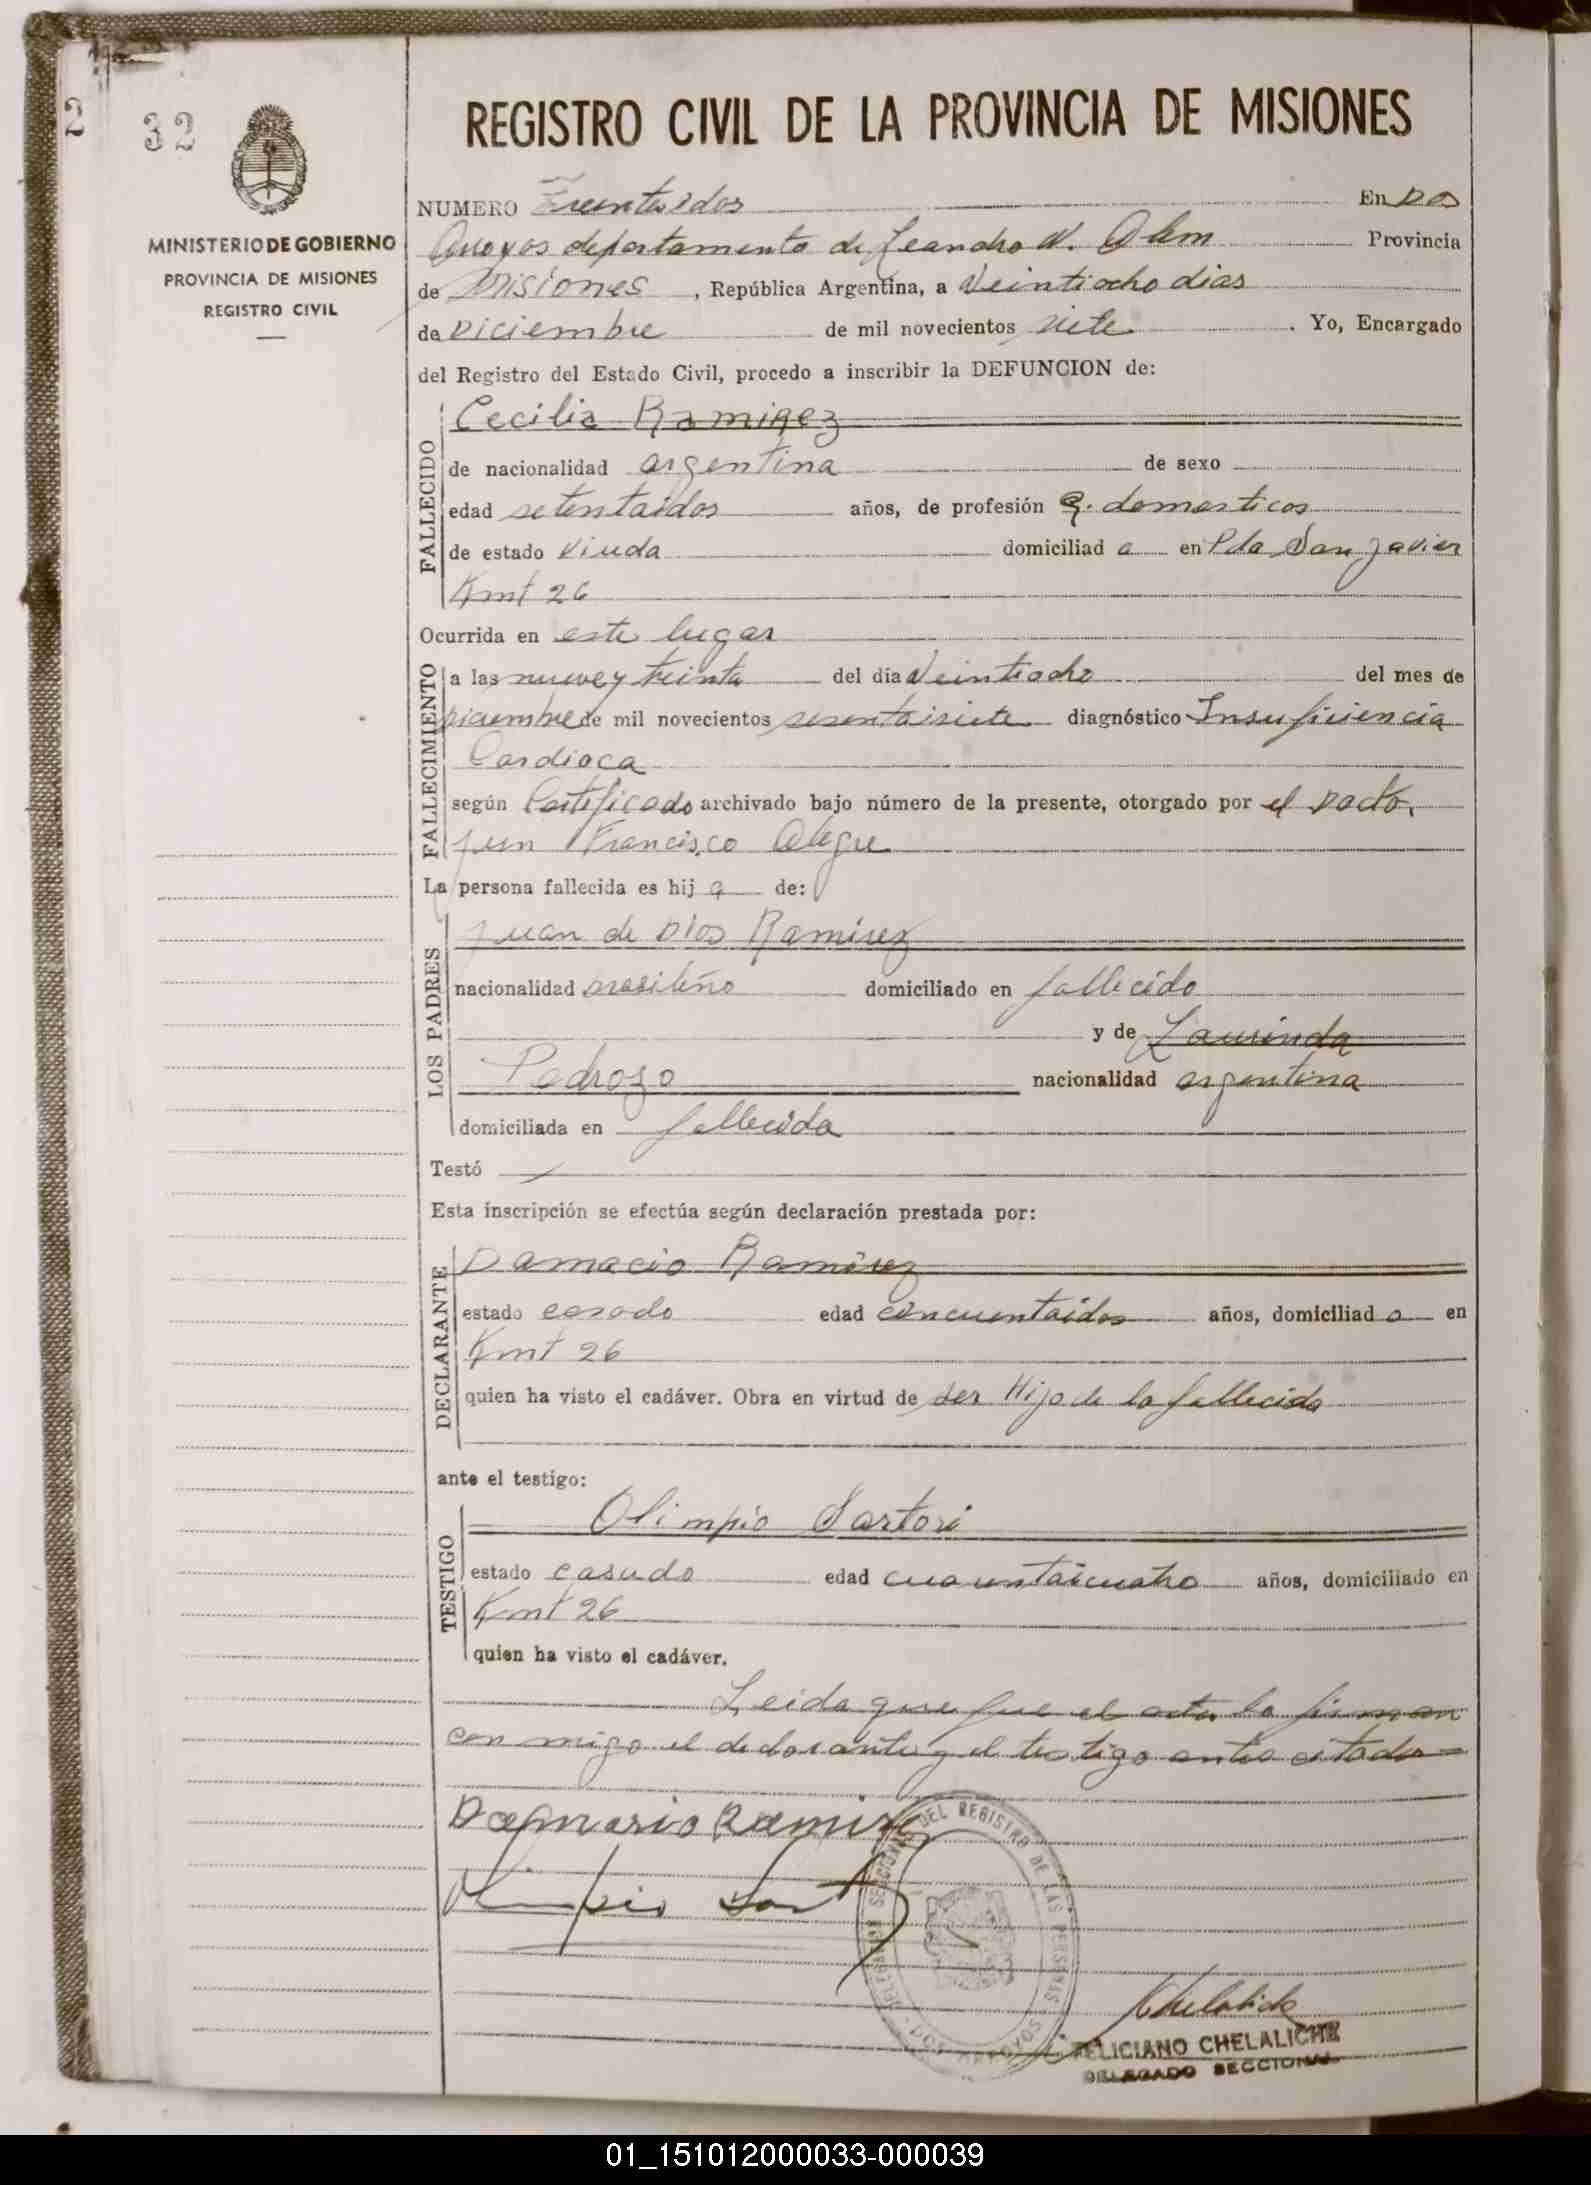 2 32
REGISTRO CIVIL DE LA PROVINCIA DE MISIONES
MINISTERIO DE GOBIERNO
PROVINCIA DE MISIONES
REGISTRO CIVIL
NUMERO Treintaidos En Dos
Arroyos departamento de Leandro N. Alem Provincia
de Misiones, República Argentina, a Veintiocho dias
de Diciembre de mil novecientos siete. Yo, Encargado
del Registro del Estado Civil, procedo a inscribir la DEFUNCION de:
FALLECIDO
Cecilia Ramirez
de nacionalidad argentina de sexo
edad setentaidos años, de profesión Q. domesticos
de estado Viuda domiciliad a en Pda San Javier
Kmt 26
Ocurrida en este lugar
FALLECIMIENTO
a las nueve y treinta del dia Veintiocho del mes de
Diciembre de mil novecientos sesentaisiete diagnóstico Insuficiencia
Cardioca
según Certificado archivado bajo número de la presente, otorgado por el Docto.
Juan Francisco Alegre
La persona fallecida es hij a de:
LOS PADRES
Juan de Dios Ramirez
nacionalidad brasileño domiciliado en fallecido
y de Laurinda
Pedrozo nacionalidad argentina
domiciliada en fallecida
Testó
Esta inscripción se efectúa según declaración prestada por:
DECLARANTE
Damacio Ramirez
estado casado edad cincuentaidos años, domiciliad o en
Kmt 26
quien ha visto el cadáver. Obra en virtud de ser Hijo de la fallecida
ante el testigo:
TESTIGO
Olimpio Sartori
estado casado edad cuarentaicuatro años, domiciliado en
Kmt 26
quien ha visto el cadáver.
Leida que fue el acta la firman
con migo el declarante y el testigo antes citado
Damasio Ramirez
Olimpio Sart
DEL REGISTRO DE LAS PERSONAS
DOS ARROYOS
Chelaliche
FELICIANO CHELALICHE
DELEGADO SECCIONAL
01_151012000033-000039